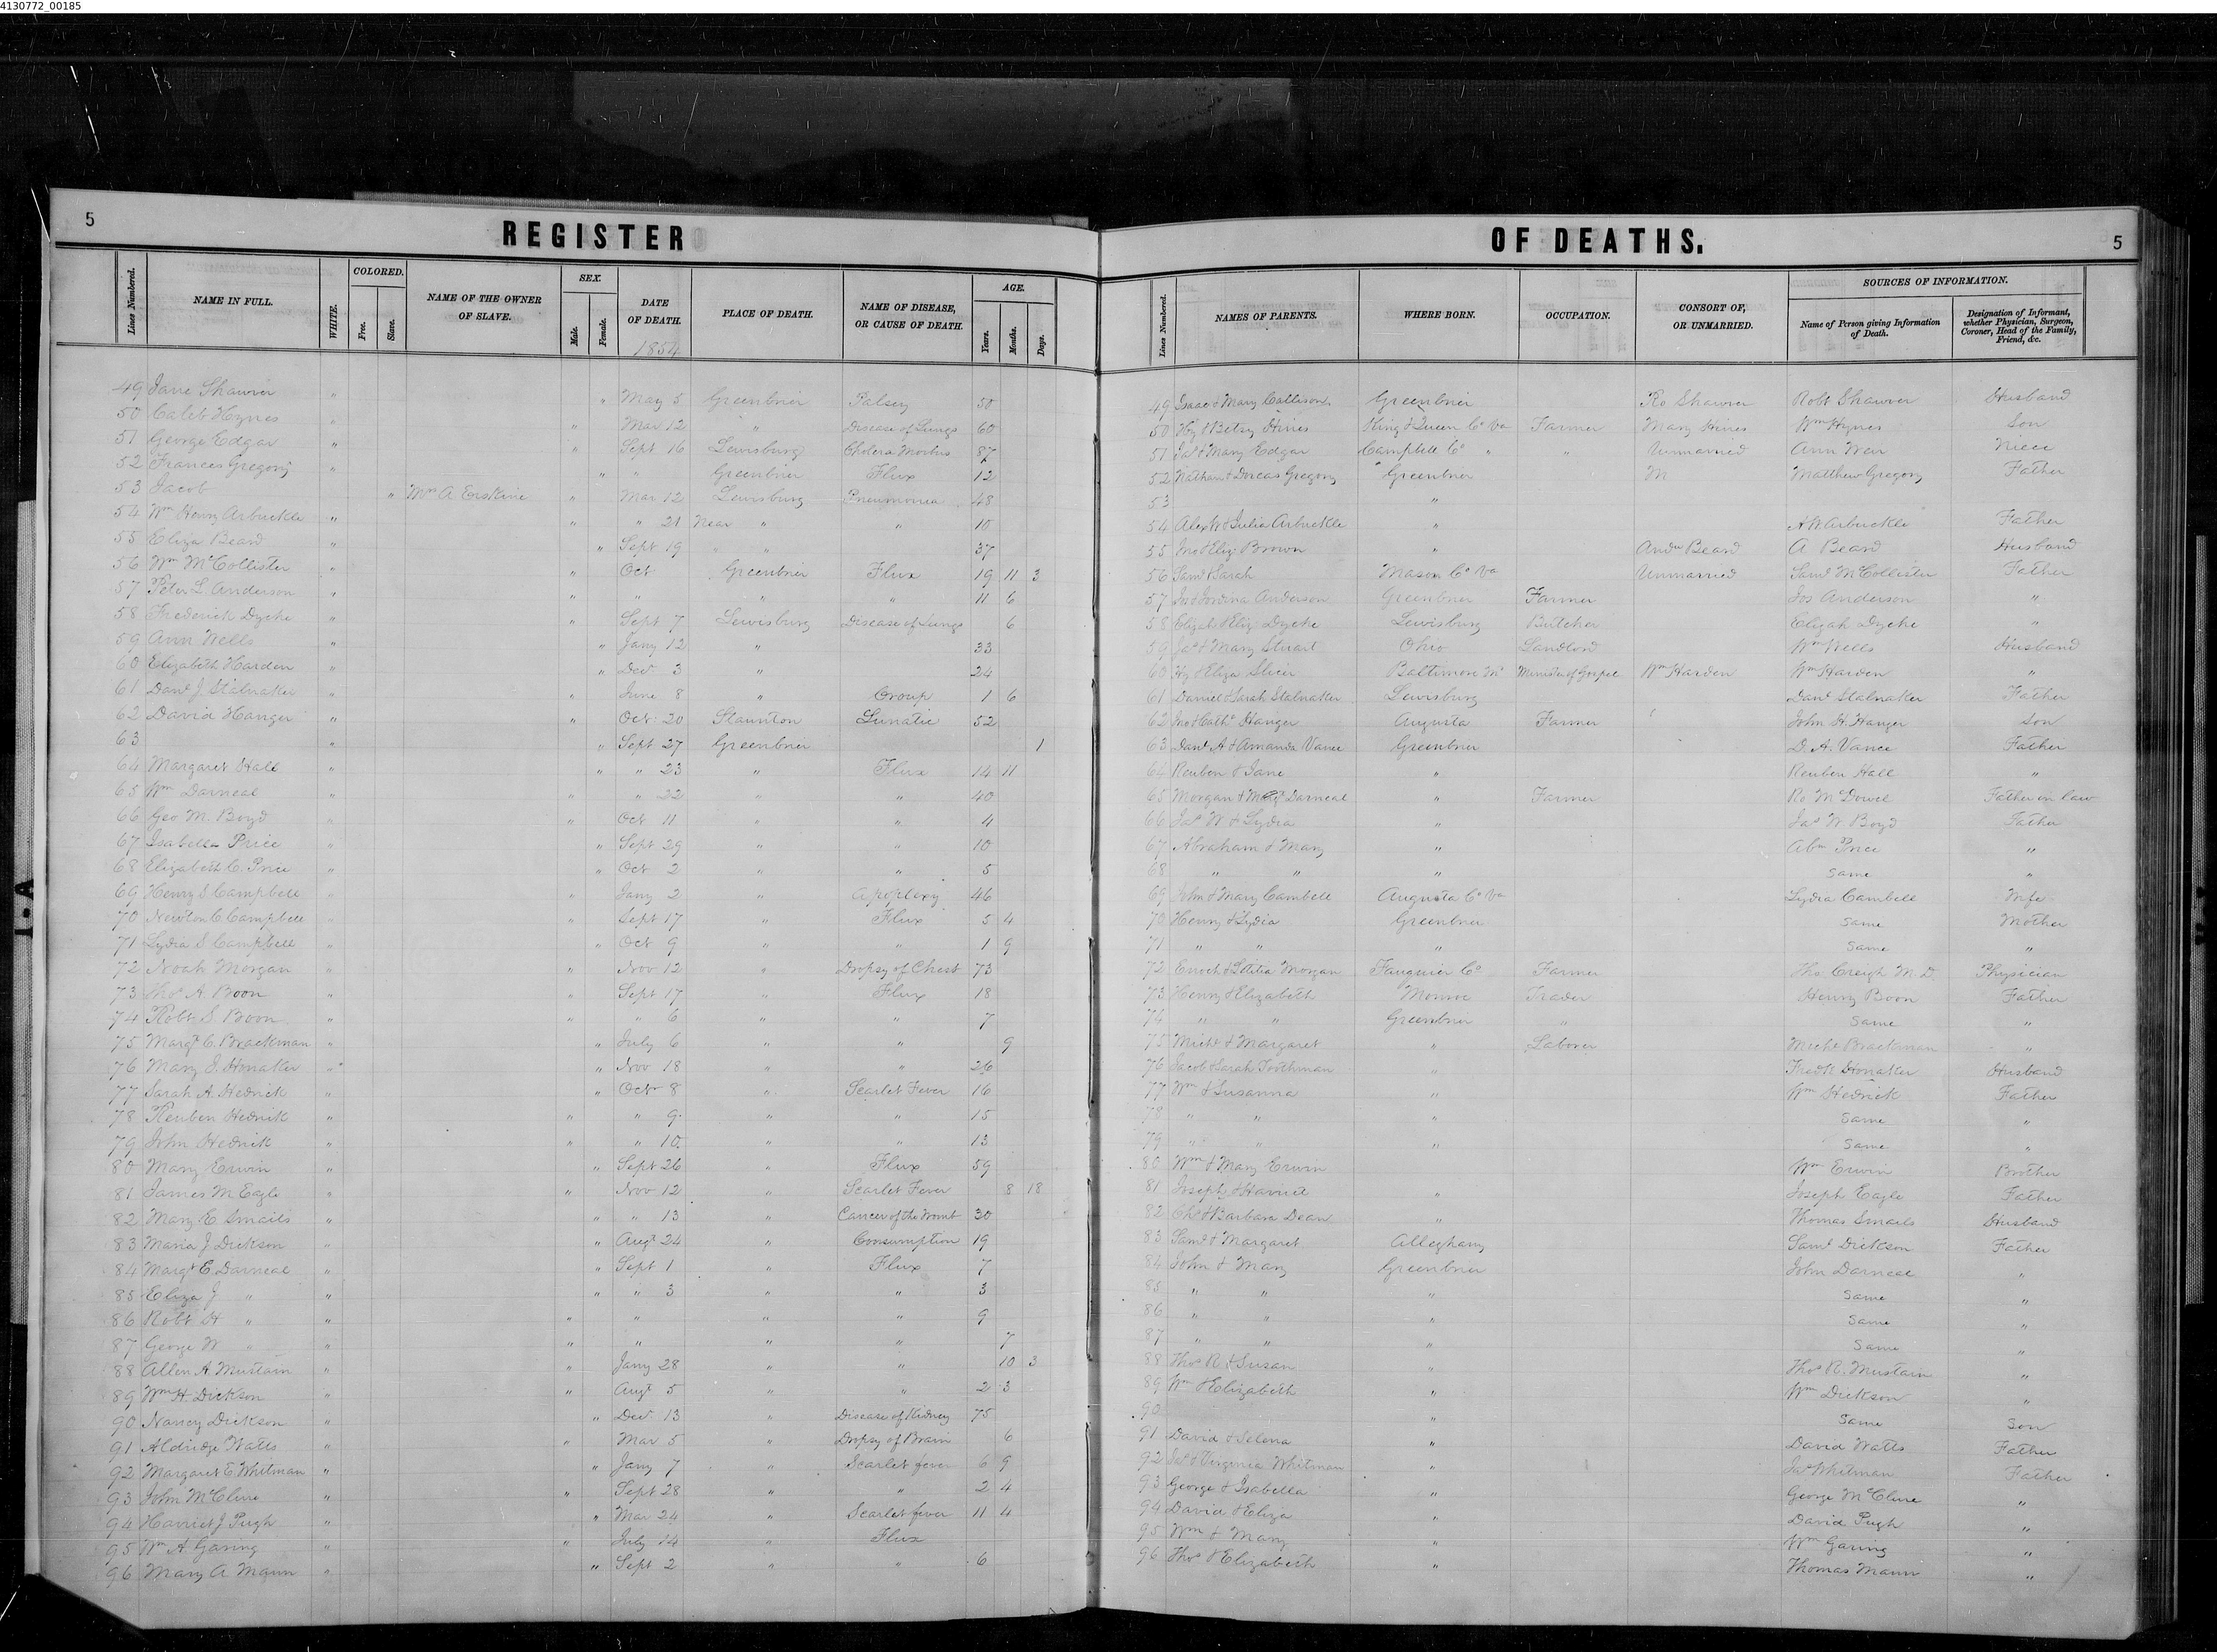 4130772_00185
5
REGISTER
OF DEATHS.
5
Lines Numbered. NAME IN FULL. WHITE. COLORED. Free. Slave. NAME OF THE OWNER OF SLAVE. SEX. Male. Female. DATE OF DEATH. PLACE OF DEATH. NAME OF DISEASE, OR CAUSE OF DEATH. AGE. Years. Months. Days. Lines Numbered. NAMES OF PARENTS. WHERE BORN. OCCUPATION. CONSORT OF, OR UNMARRIED. SOURCES OF INFORMATION. Name of Person giving Information of Death. Designation of Informant, whether Physician, Surgeon, Coroner, Head of the Family, Friend, &c.
1854
49 Jane Shawver " " May 5 Greenbrier Palsey 50 49 Isaac & Mary Callison Greenbrier Ro Shawver Robt Shawver Husband
50 Caleb Hynes " " Mar 12 " Disease of Lungs 60 50 Hy & Betsy Hines King & Queen Co Va Farmer Mary Hines Wm Hynes Son
51 George Edgar " " Sept 16 Lewisburg Cholera Morbus 87 51 Jas & Mary Edgar Campbell Co " " Unmarried Ann Weir Niece
52 Frances Gregory " " " Greenbrier Flux 12 52 Nathan & Dorcas Gregory Greenbrier Matthew Gregory Father
53 Jacob " Wm A Erskine " Mar 12 Lewisburg Pneumonia 48 53 "
54 Wm Henry Arbuckle " " " 21 Near " " 10 54 Alex W & Julia Arbuckle " A W Arbuckle Father
55 Eliza Beard " " Sept 19 " " 37 55 Jno & Eliz Brown " Andw Beard A Beard Husband
56 Wm McCollister " " Oct Greenbrier Flux 19 11 3 56 Saml & Sarah Mason Co Va Unmarried Saml McCollister Father
57 Peter L. Anderson " " " " " 11 6 57 Anderson Greenbrier Farmer Jos Anderson "
58 Frederick Dyche " " Sept 7 Lewisburg Disease of Lungs 6 58 Elijah & Eliz Dyche Lewisburg Butcher Elijah Dyche "
59 Ann Wells " " Jany 12 " 33 59 Jas & Mary Stuart Ohio Landlord Wm Wells Husband
60 Elizabeth Harden " " Dec 3 " 24 60 Hy & Eliza Slicer Baltimore Md Minister of Gospel Wm Harden Wm Harden "
61 Danl J. Stalnaker " " June 8 " Croup 1 6 61 Daniel & Sarah Stalnaker Lewisburg Danl Stalnaker Father
62 David Hanger " " Oct 20 Staunton Lunatic 52 62 Jno & Cathe Hanger Augusta Farmer John H. Hanger Son
63 " " Sept 27 Greenbrier 1 63 Danl A & Amanda Vance Greenbrier D. A. Vance Father
64 Margaret Hall " " " 23 " Flux 14 11 64 Reuben & Jane " Reuben Hall "
65 Wm Darneal " " " 22 " " 40 65 Morgan & Margt Darneal " Farmer Ro McDowel Father in law
66 Geo M. Boyd " " Oct 11 " " 4 66 Jas W. & Lydia " Jas W. Boyd Father
67 Isabella Price " " Sept 29 " " 10 67 Abraham & Mary " Abm Price "
68 Elizabeth C. Price " " Oct 2 " " 5 68 " " " Same "
69 Henry S Campbell " " Jany 2 " Apoplexy 46 69 John & Mary Cambell Augusta Co Va Lydia Cambell Wife
70 Newton C Campbell " " Sept 17 " Flux 5 4 70 Henry & Lydia Greenbrier Same Mother
71 Lydia S Campbell " " Oct 9 " " 1 9 71 " " " Same "
72 Noah Morgan " " Nov 12 " Dropsy of Chest 73 72 Enoch & Letitia Morgan Fauquier Co Farmer Tho. Creigh M. D Physician
73 Thos A. Boon " " Sept 17 " Flux 18 73 Henry & Elizabeth Monroe Trader Henry Boon Father
74 Robt S. Boon " " " 6 " " 7 74 " " Greenbrier " Same "
75 Margt C. Brackman " " July 6 " " 9 75 Michl & Margaret " Laborer Michl Brackman "
76 Mary J. Honaker " " Nov 18 " " 26 76 Jacob & Sarah " Fredk Honaker Husband
77 Sarah A. Hedrick " " Octr 8 " Scarlet Fever 16 77 Wm & Susanna " Wm Hedrick Father
78 Reuben Hedrick " " " 9 " " 15 78 " " " Same "
79 John Hedrick " " " 10 " " 13 79 " " " Same "
80 Mary Erwin " " Sept 26 " Flux 59 80 Wm & Mary Erwin Wm Erwin Brother
81 James M Eagle " " Nov 12 " Scarlet Fever 8 18 81 Joseph & Harriet " Joseph Eagle Father
82 Mary E Smails " " " 13 " Cancer of the Womb 30 82 Chs & Barbara Dean " Thomas Smails Husband
83 Maria J Dickson " " Augt 24 " Consumption 19 83 Saml & Margaret Alleghany Saml Dickson Father
84 Margt E. Darneal " " Sept 1 " Flux 7 84 John & Mary Greenbrier John Darneal "
85 Eliza J " " " " 3 " " 3 85 " " " Same "
86 Robt H " " " " " " 9 86 " " " Same "
87 George W " " " " " " 7 87 " " " Same "
88 Allen A. Mustain " " Jany 28 " " 10 3 88 Thos R. & Susan " Thos R. Mustain "
89 Wm H. Dickson " " Augt 5 " " 2 3 89 Wm & Elizabeth " Wm Dickson "
90 Nancy Dickson " " Dec 13 " Disease of Kidney 75 90 " Same Son
91 Aldridge Watts " " Mar 5 " Dropsy of Brain 6 91 David & Selena " David Watts Father
92 Margaret E Whitman " " Jany 7 " Scarlet fever 6 9 92 Jas & Virginia Whitman " Jas Whitman Father
93 John McClure " " Sept 28 " " 2 4 93 George & Isabella " George McClure "
94 Harriet J Pugh " " Mar 24 " Scarlet fever 11 4 94 David & Eliza " David Pugh "
95 Wm A Garing " " July 14 " Flux 95 Wm & Mary " Wm Garing "
96 Mary A Mann " " Sept 2 " " 6 96 Thos & Elizabeth " Thomas Mann "